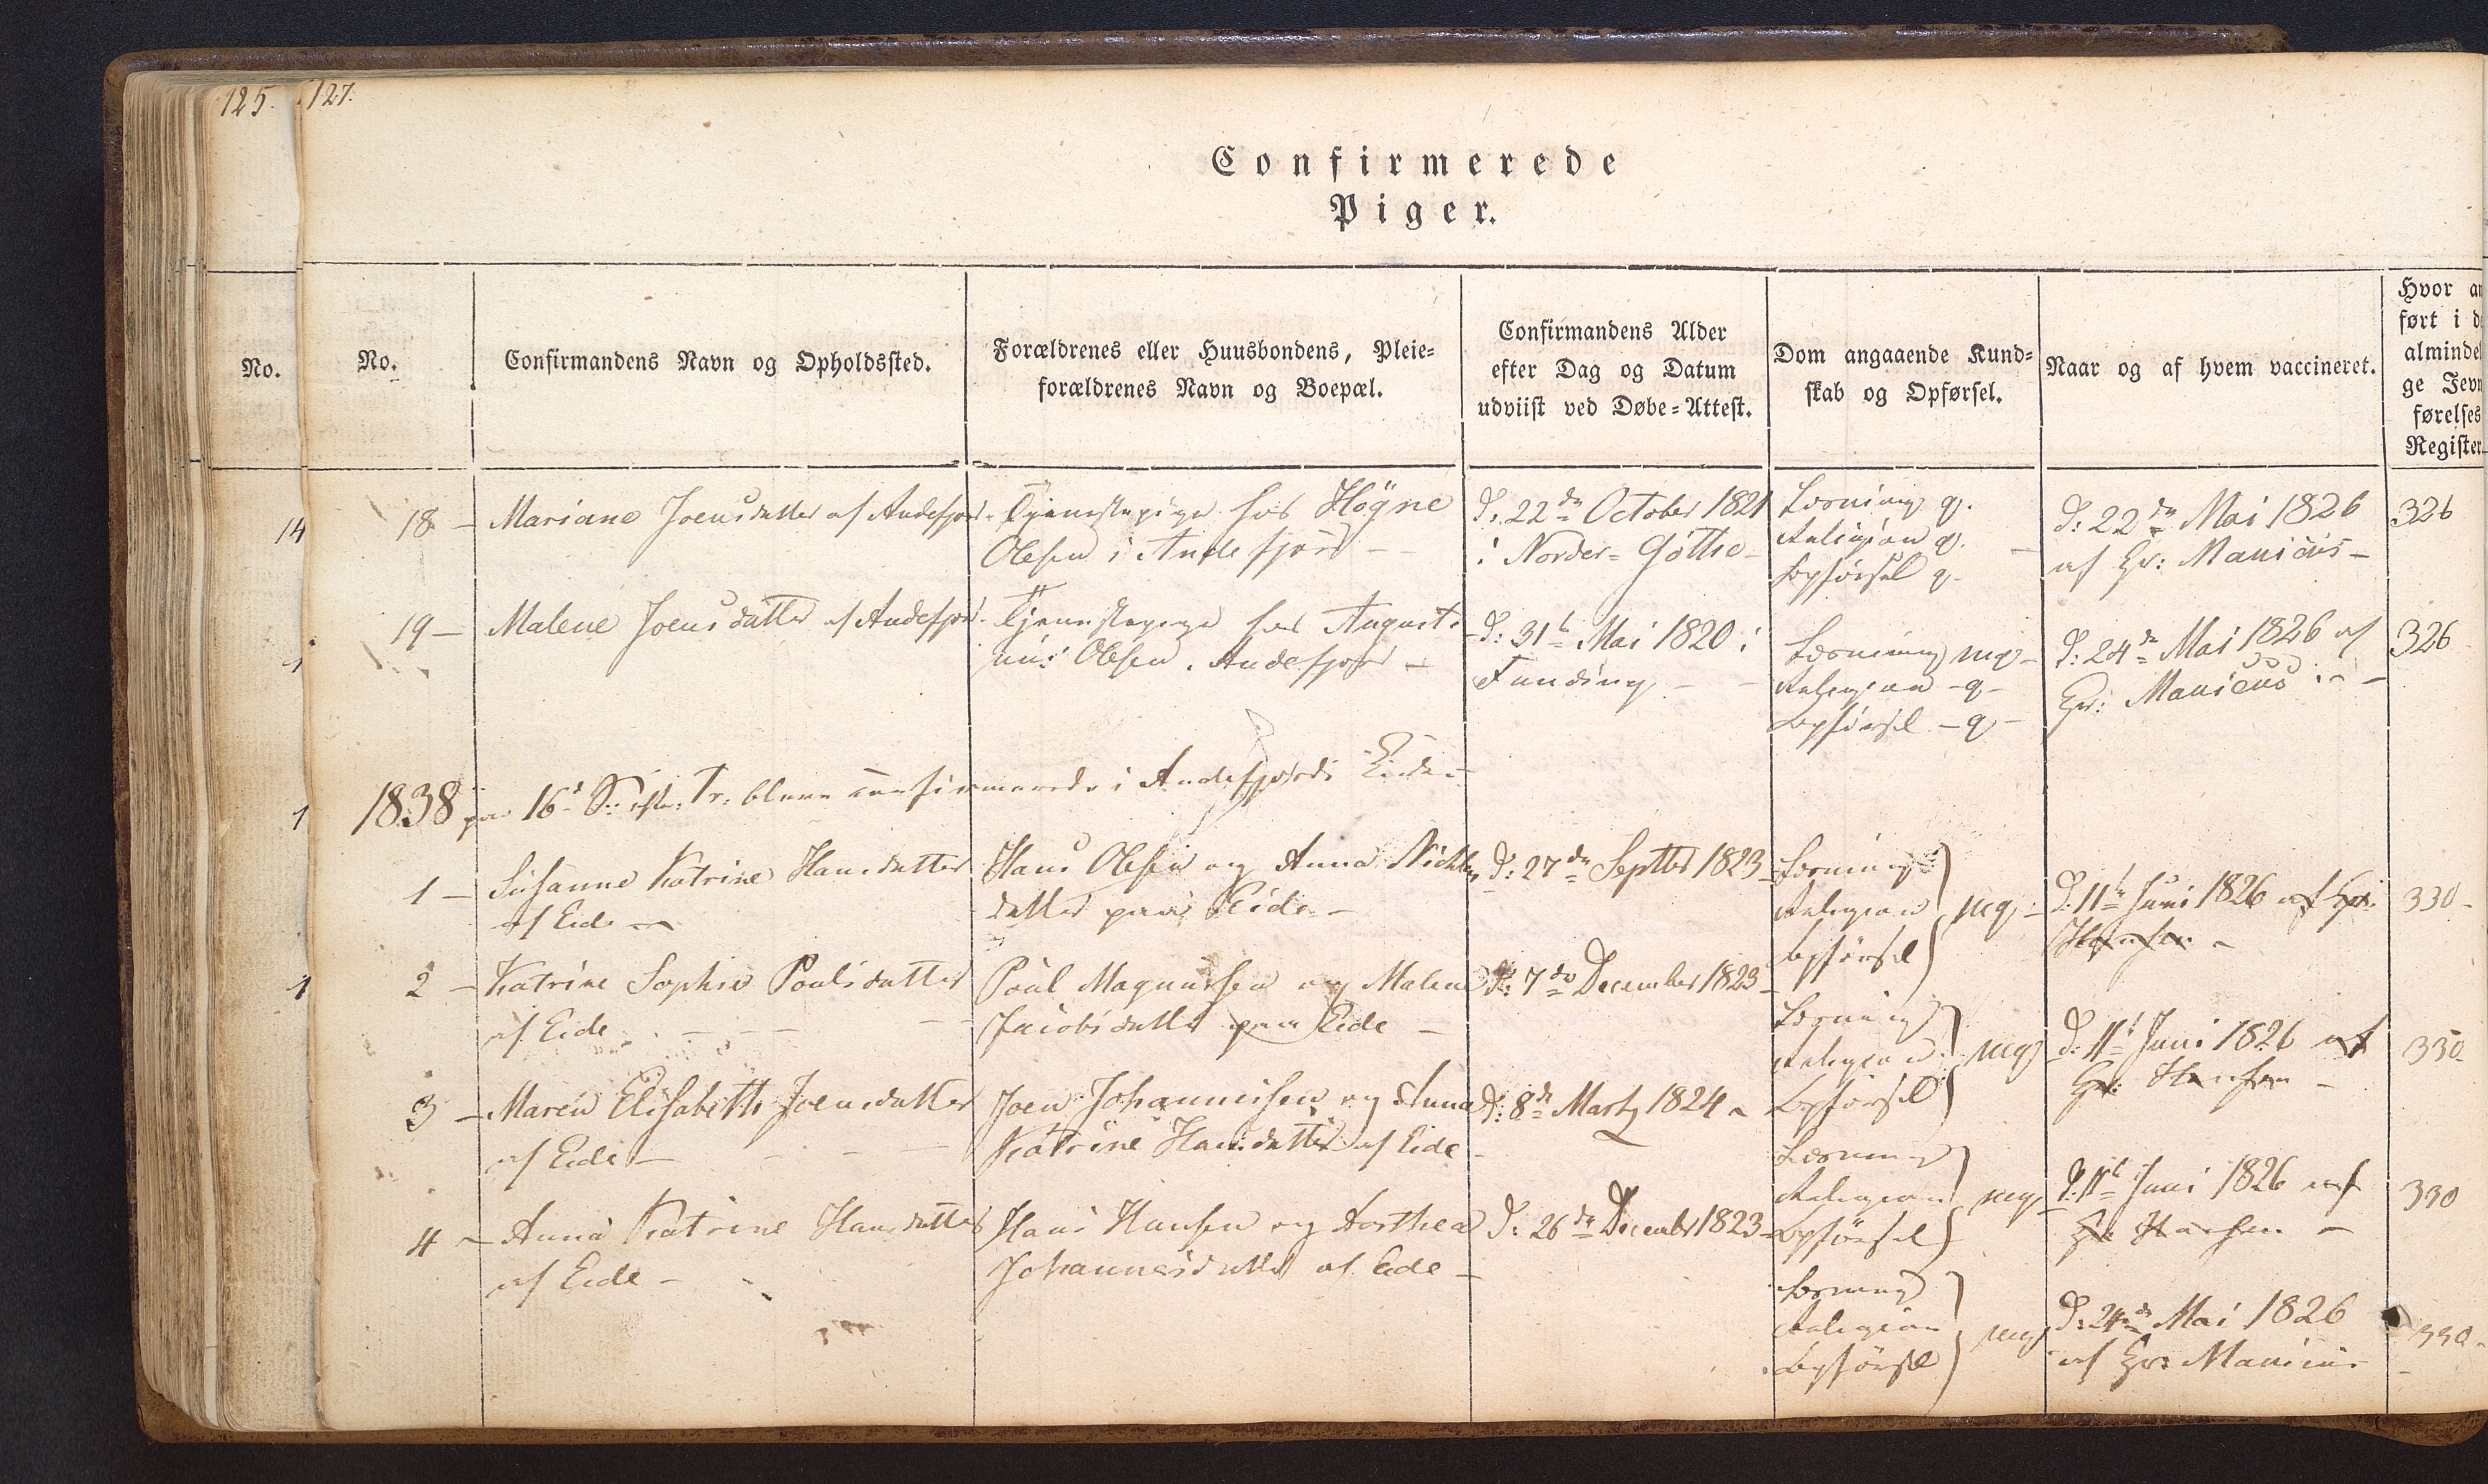 125. 127.
Confirmerede
Piger.
No. No. Confirmandens Navn og Opholdssted. Forældrenes eller Huusbondens, Pleie- Confirmandens Alder Dom angaaende Kund- Naar og af hvem vaccineret. Hvor an
forældrenes Navn og Boepæl. efter Dag og Datum skab og Opførsel. ført i de
udviist ved Døbe-Attest. almindel
ge Jevn
førelses
Register.
14 18 - Mariane Joensdatter af Andefjord. Tjenestepige hos Högne D: 22de October 1821 Læsning g. D: 22de Mai 1826 326
Olesen i Andefjord - i Norder-Göthe- Religion g. af Hr: Manicus -
Opförsel g.
1 19 - Malene Joensdatter af Andefjord. Tjenestepige hos August- D: 31te Mai 1820 i Læsning mg - D: 24de Mai 1826 af 326
inus Olesen i Andefjord - Funding - Religion - g - Hr: Manicus -
Opförsel - g -
1 1838 paa 16de S: efter Tr: bleve confirmerede i Andefjords Eide -
1 - Susanne Katrine Hansdatter Hans Olesen og Anna D: 27de Septbr 1823 - Læsning D: 11te Juni 1826 af Hr: 330 -
af Eide - datter paa Eide - Religion mg - Hansen -
Opförsel
1 2 - Katrine Sophie Poulsdatter Poul Magnussen og Malene D: 7de December 1823 - Læsning D: 11te Juni 1826 af 330
af Eide - Jacobsdatter paa Eide - Religion mg Hr: Hansen -
Opförsel
3 - Maren Elisabeth Joensdatter Joen Johannesen og Anna D: 8de Marty 1824 - Læsning D: 11te Juni 1826 af 330
af Eide - Katrine Hansdatter af Eide - Religion mg - Hr: Hansen -
Opförsel
4 - Anna Katrine Hansdatter Hans Hansen og Dorthea D: 26de December 1823 - Læsning D: 24de Mai 1826 330 -
af Eide - Johannesdatter af Eide - Religion mg af Hr: Manicus
Opförsel